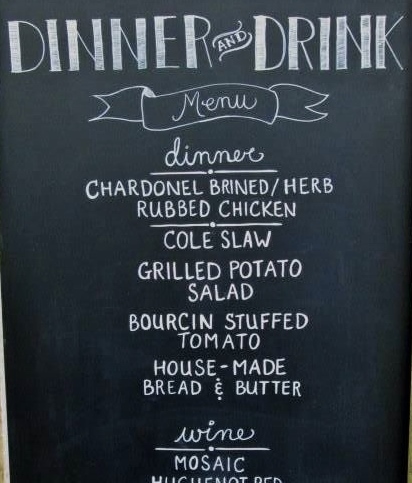 DINNER AND DRINK
Menu
dinner
CHARDONEL BRINED/HERB
RUBBED CHICKEN
COLE SLAW
GRILLED POTATO
SALAD
BOURCIN STUFFED
TOMATO
HOUSE-MADE
BREAD & BUTTER
wine
MOSAIC
HUGUENOT RED